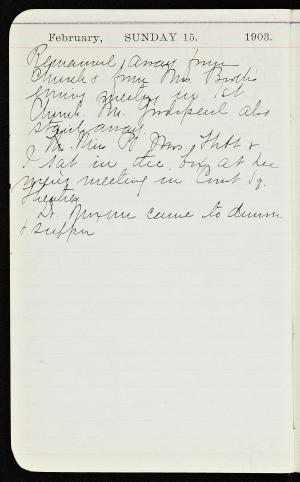 February, SUNDAY 15. 1903.
Remained away from
Church & from Mrs.
evening meeting in 1st
Church Mr. also
stayed away.
Mr. Mrs. &
I sat in the box at her
meeting in Court Sq.
Theatre
Dr. came to dinner
& supper